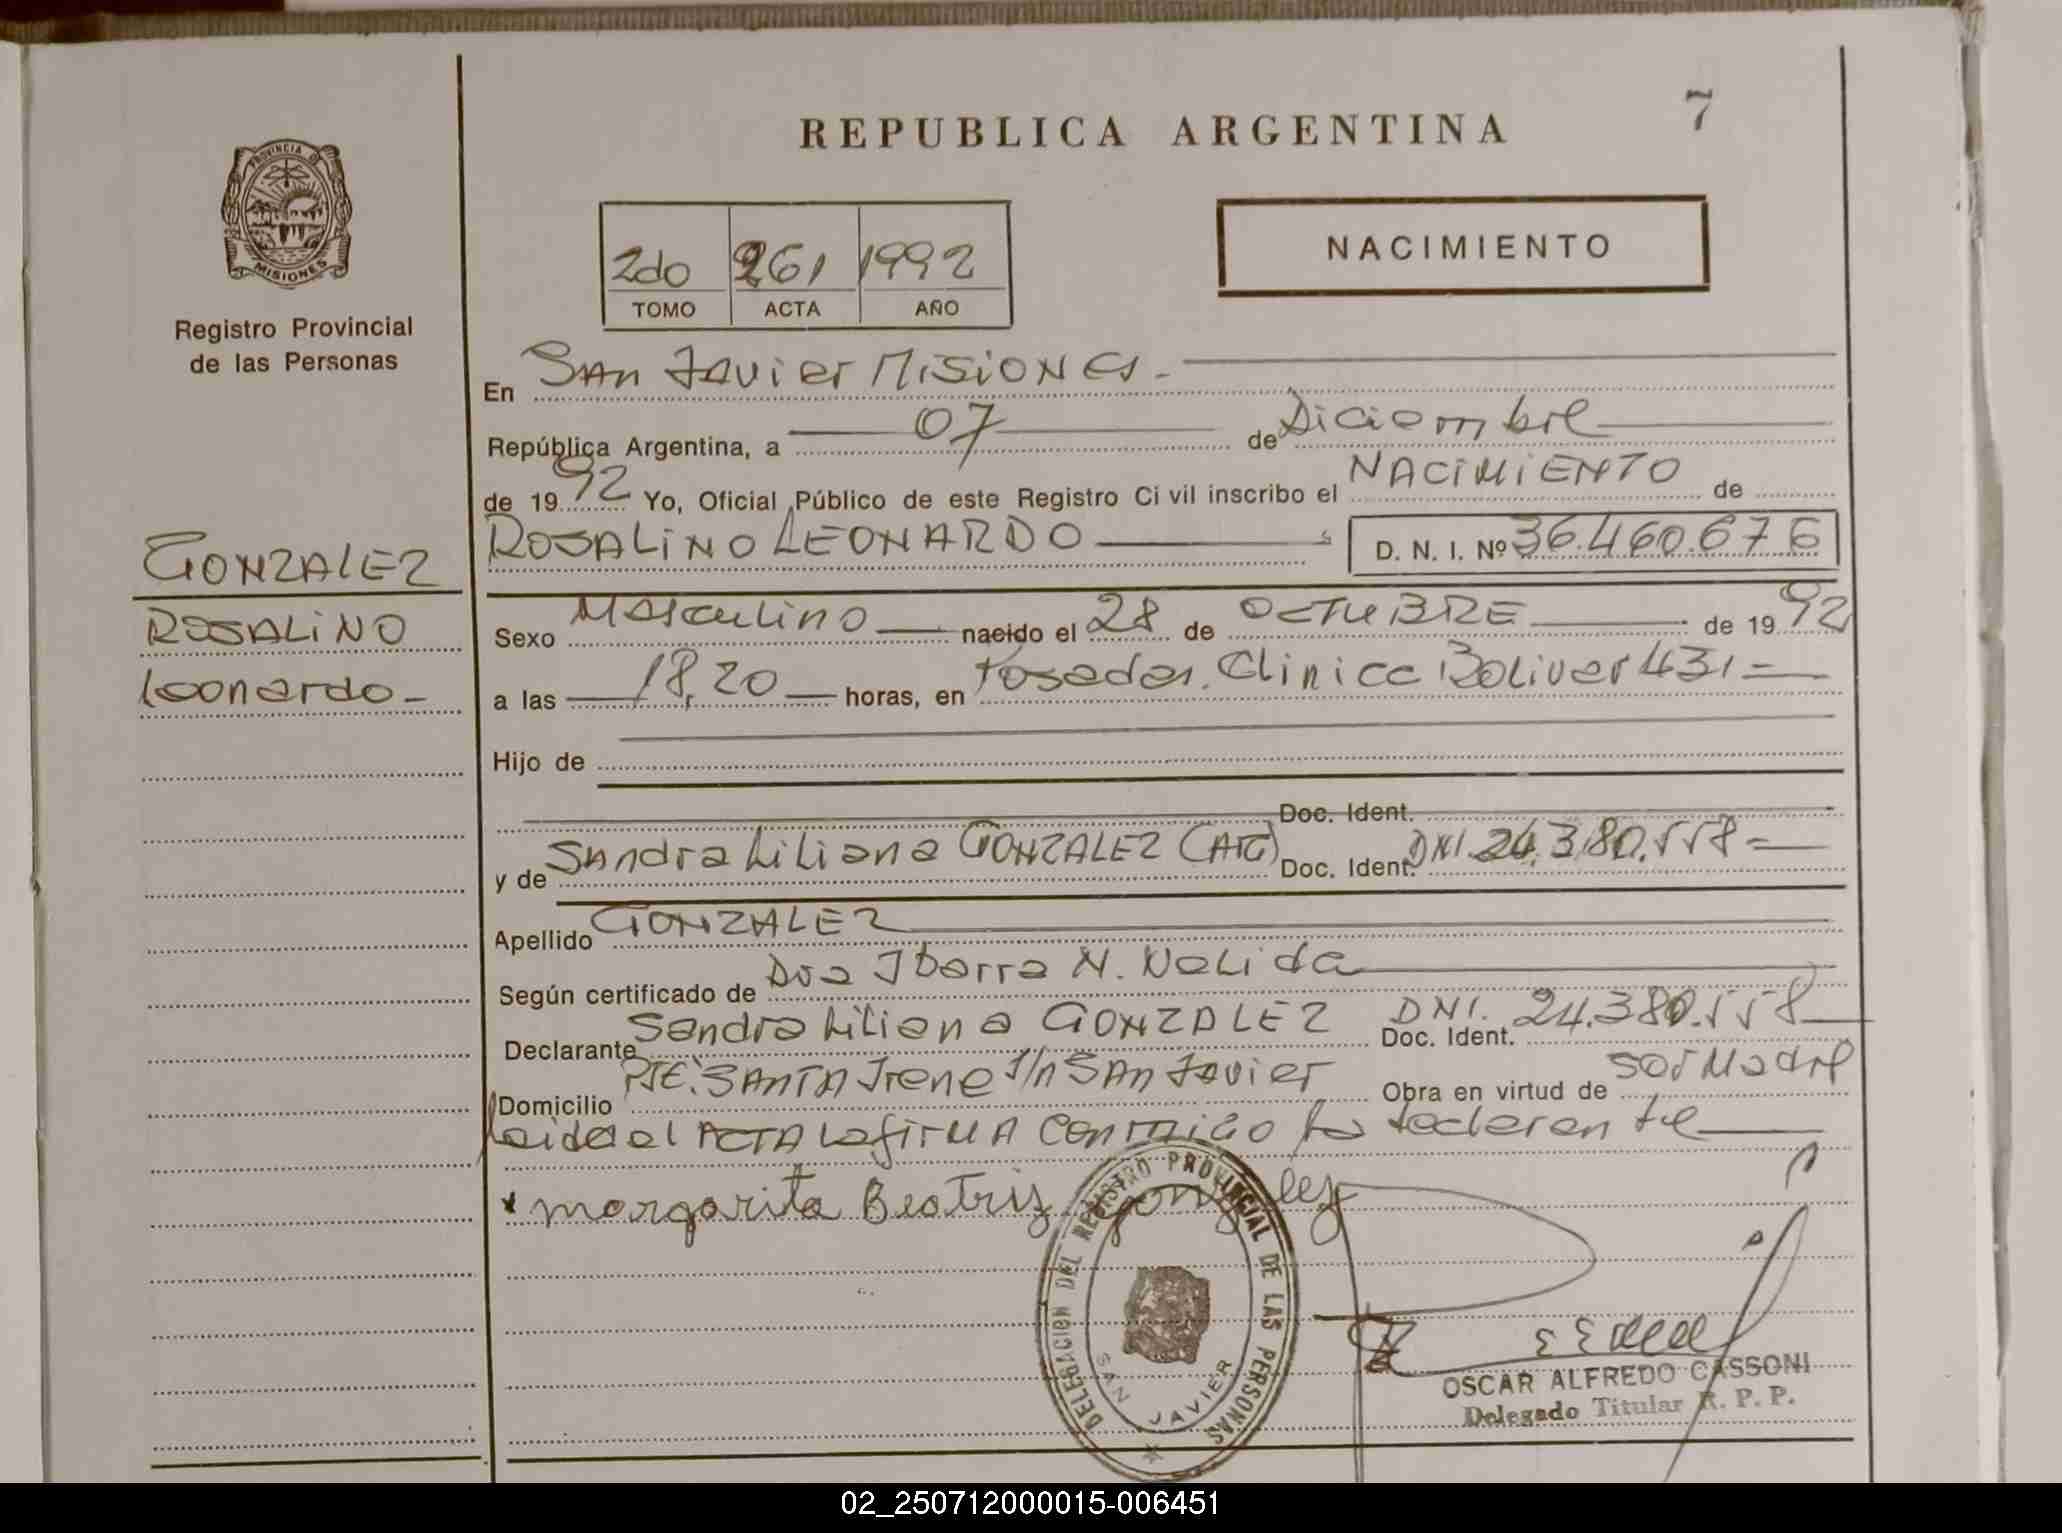 7
REPUBLICA ARGENTINA
PROVINCIA DE
MISIONES
Registro Provincial
de las Personas
2do 261 1992
TOMO ACTA AÑO
NACIMIENTO
En San Javier Misiones.-
República Argentina, a 07 de Diciembre
de 1992 Yo, Oficial Público de este Registro Civil inscribo el NACIMIENTO de
ROSALINO LEONARDO D. N. I. Nº 36.460.676
GONZALEZ
ROSALINO
Leonardo-
Sexo Masculino nacido el 28 de OCTUBRE de 1992
a las 18,20 horas, en Posadas. Clinica Bolivar 431=
Hijo de
Doc. Ident.
y de Sandra Liliana GONZALEZ (ARG) Doc. Ident. DNI. 24.380.558=
Apellido GONZALEZ
Según certificado de Dra Ibarra N. Nelida
Declarante Sandra Liliana GONZALEZ Doc. Ident. DNI. 24.380.558
Domicilio PJE. SANTA Irene S/n SAn Javier Obra en virtud de ser Madre
Leida el ACTA La firMA Conmigo la declarante
x Margarita Beatriz Gonzalez
DELEGACION DEL REGISTRO PROVINCIAL DE LAS PERSONAS
SAN JAVIER
OSCAR ALFREDO CASSONI
Delegado Titular R. P. P.
02_250712000015-006451